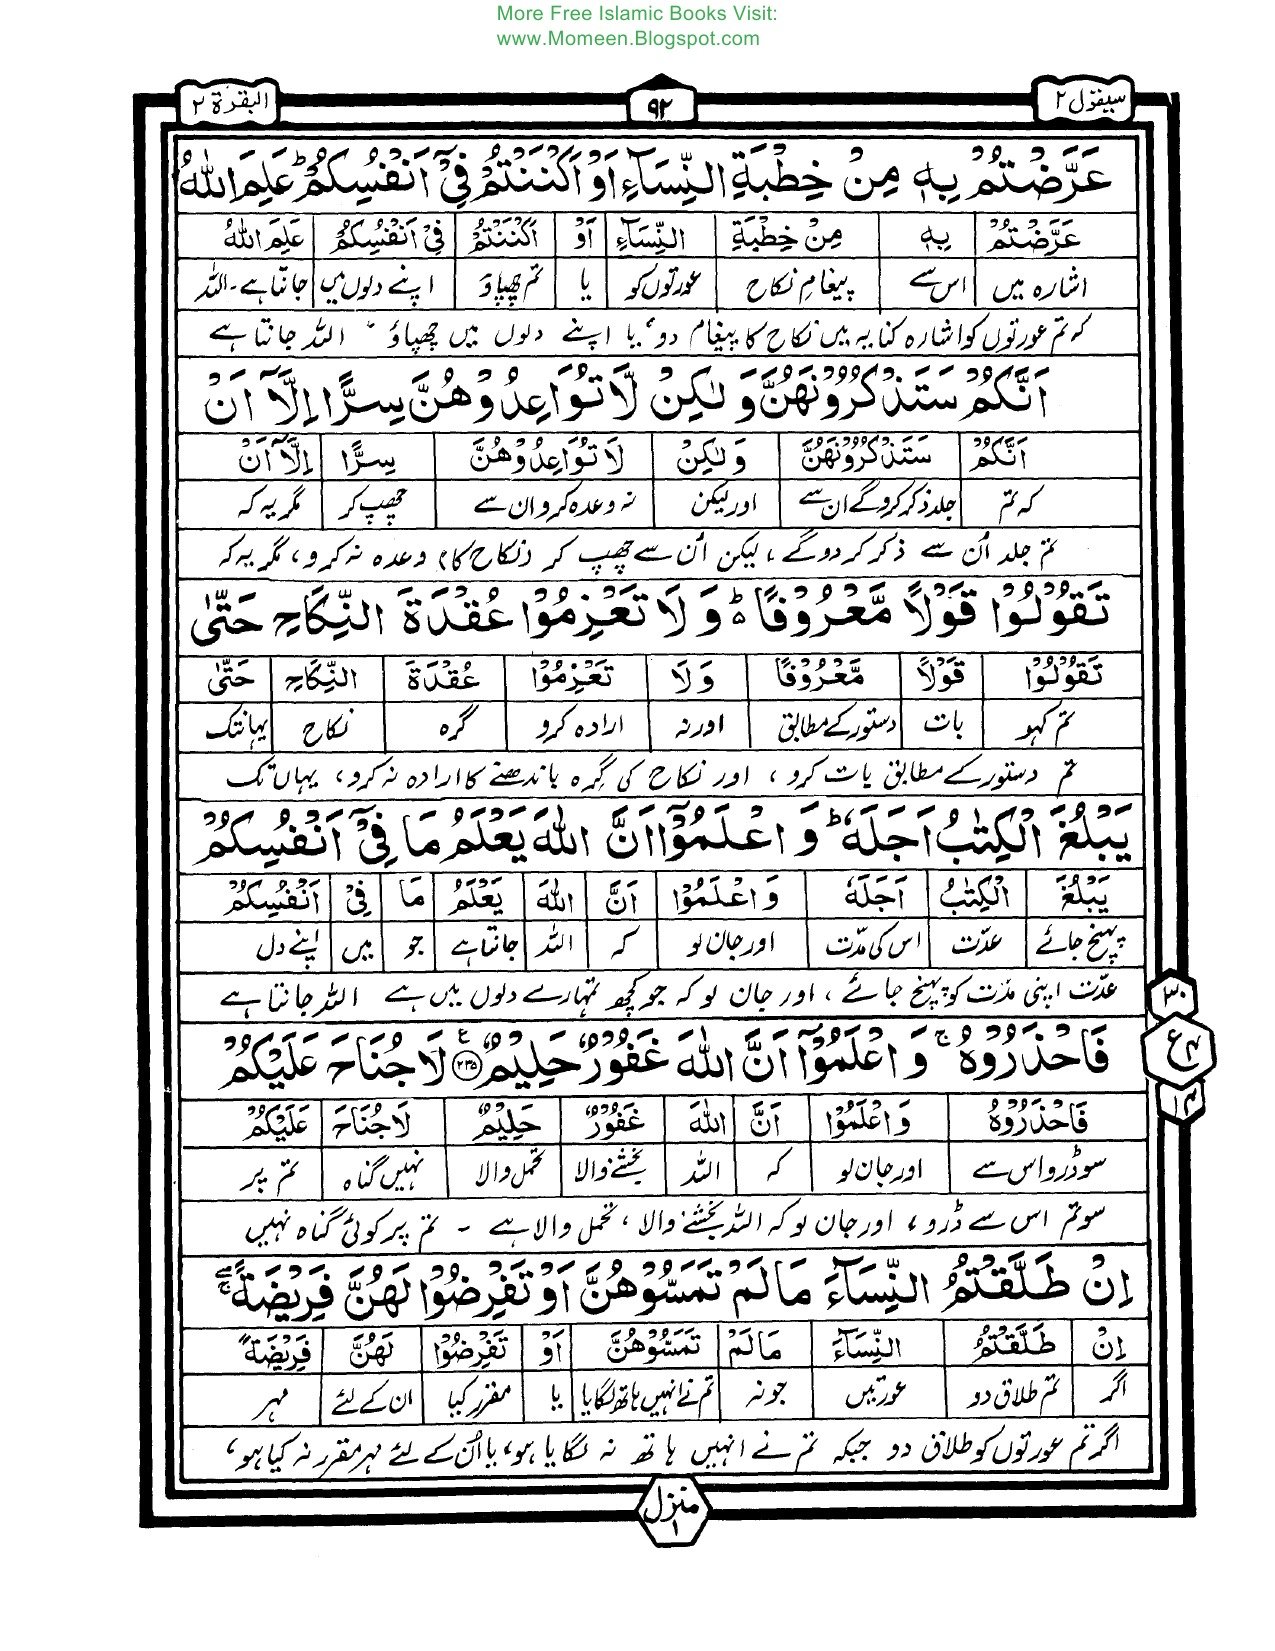 More Free Islamic Books Visit:
www.Momeen.Blogspot.com
سیقول ۲ ۹۲ البقرة ۲
عَرَّضْتُمْ بِهٖ مِنْ خِطْبَةِ النِّسَآءِ اَوْ اَكْنَنْتُمْ فِيْٓ اَنْفُسِكُمْ ؕ عَلِمَ اللّٰهُ
عَرَّضْتُمْ بِهٖ مِنْ خِطْبَةِ النِّسَآءِ اَوْ اَكْنَنْتُمْ فِيْٓ اَنْفُسِكُمْ عَلِمَ اللّٰهُ
اشارہ میں اس سے پیغامِ نکاح عورتوں کو یا تم چھپاؤ اپنے دلوں میں جانتا ہے۔ اللہ
کہ تم عورتوں کو اشارہ کنایہ میں نکاح کا پیغام دو، یا اپنے دلوں میں چھپاؤ ۔ اللہ جانتا ہے
اَنَّكُمْ سَتَذْكُرُوْنَهُنَّ وَلٰكِنْ لَّا تُوَاعِدُوْهُنَّ سِرًّا اِلَّآ اَنْ
اَنَّكُمْ سَتَذْكُرُوْنَهُنَّ وَلٰكِنْ لَا تُوَاعِدُوْهُنَّ سِرًّا اِلَّآ اَنْ
کہ تم جلد ذکر کروگے ان سے اور لیکن نہ وعدہ کرو ان سے چھپ کر مگر یہ کہ
تم جلد اُن سے ذکر کر دو گے ، لیکن اُن سے چھپ کر (نکاح کا) وعدہ نہ کرو ، مگر یہ کہ
تَقُوْلُوْا قَوْلًا مَّعْرُوْفًا ؕ۬ وَلَا تَعْزِمُوْا عُقْدَةَ النِّكَاحِ حَتّٰى
تَقُوْلُوْا قَوْلًا مَّعْرُوْفًا وَلَا تَعْزِمُوْا عُقْدَةَ النِّكَاحِ حَتّٰى
تم کہو بات دستور کے مطابق اور نہ ارادہ کرو گرہ نکاح یہانتک
تم دستور کے مطابق بات کرو ، اور نکاح کی گِرہ باندھنے کا ارادہ نہ کرو ، یہاں تک
يَبْلُغَ الْكِتٰبُ اَجَلَهٗ ؕ وَاعْلَمُوْٓا اَنَّ اللّٰهَ يَعْلَمُ مَا فِيْٓ اَنْفُسِكُمْ
يَبْلُغَ الْكِتٰبُ اَجَلَهٗ وَاعْلَمُوْٓا اَنَّ اللّٰهَ يَعْلَمُ مَا فِيْ اَنْفُسِكُمْ
پہنچ جائے عدّت اس کی مدّت اور جان لو کہ اللہ جانتا ہے جو میں اپنے دل
عدّت اپنی مدّت کو پہنچ جائے ، اور جان لو کہ جو کچھ تمہارے دلوں میں ہے اللہ جانتا ہے
۳۰
فَاحْذَرُوْهُ ۚ وَاعْلَمُوْٓا اَنَّ اللّٰهَ غَفُوْرٌ حَلِيْمٌ ۲۳۵ۧ لَا جُنَاحَ عَلَيْكُمْ
ع
۱۴
فَاحْذَرُوْهُ وَاعْلَمُوْٓا اَنَّ اللّٰهَ غَفُوْرٌ حَلِيْمٌ لَا جُنَاحَ عَلَيْكُمْ
سو ڈرو اس سے اور جان لو کہ اللہ بخشنے والا تحمل والا نہیں گناہ تم پر
سو تم اس سے ڈرو ، اور جان لو کہ اللہ بخشنے والا ، تحمل والا ہے ۔ تم پر کوئی گناہ نہیں
اِنْ طَلَّقْتُمُ النِّسَآءَ مَا لَمْ تَمَسُّوْهُنَّ اَوْ تَفْرِضُوْا لَهُنَّ فَرِيْضَةً ۖۚ
اِنْ طَلَّقْتُمُ النِّسَآءَ مَا لَمْ تَمَسُّوْهُنَّ اَوْ تَفْرِضُوْا لَهُنَّ فَرِيْضَةً
اگر تم طلاق دو عورتیں جو نہ تم نے انہیں ہاتھ لگایا یا مقرر کیا ان کے لئے مہر
اگر تم عورتوں کو طلاق دو جبکہ تم نے انہیں ہاتھ نہ لگایا ہو، یا اُن کے لئے مہر مقرر نہ کیا ہو،
منزل ۱